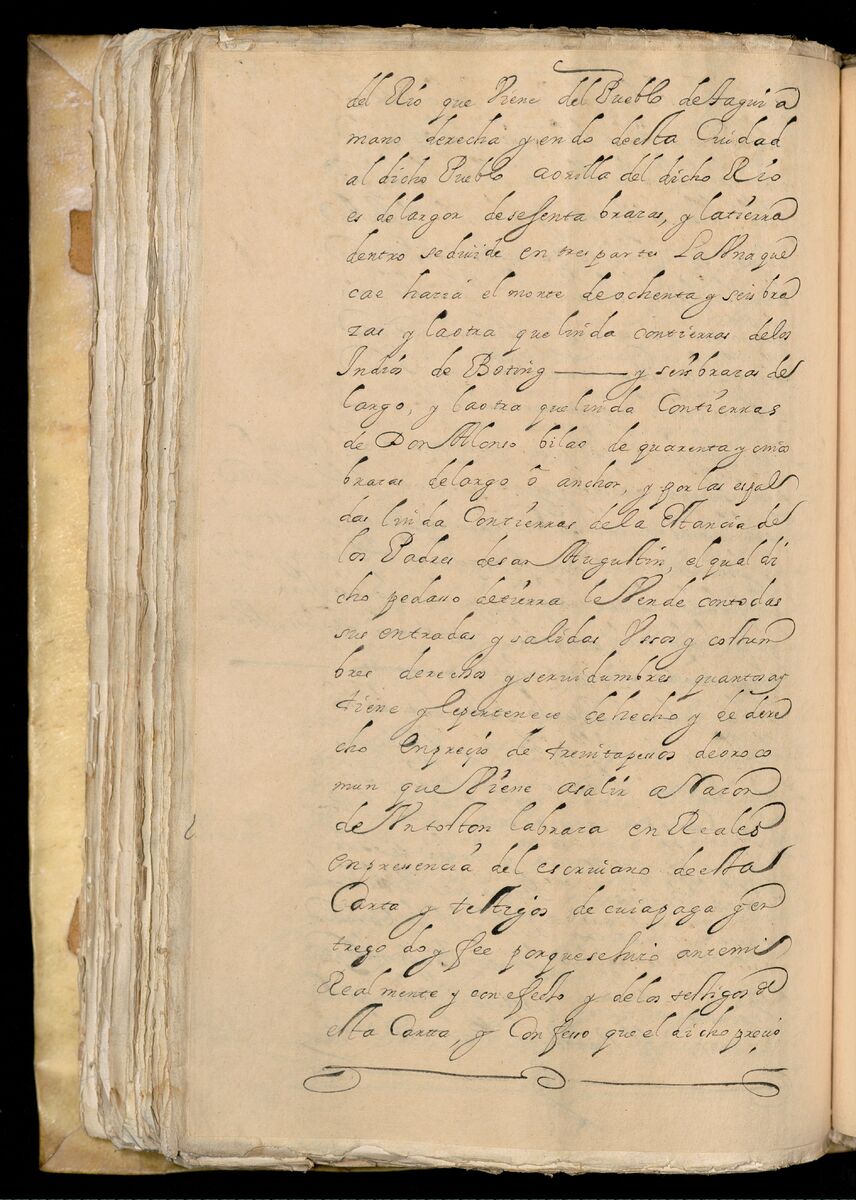 del Rio que Viene del Pueblo de tagui a
mano derecha yendo de esta Ciudad
al dicho Pueblo a orilla del dicho Rio
es de largor de sesenta brazas, y la tierra
dentro se diuide en tres partes La Vna que
cae hazia el monte de ochenta y seis bra
zas y la otra que linda con tierras de los
Indios de Boting ——— y seis brazas de
largo, y la otra que linda Con tierras
de Don Alonso bilao de quarenta y cinco
brazas de largo ō anchor, y por las espal
das linda Con tierras de la Estancia de
los Padres de san Augustin, el qual di
cho pedaso de tierra le Vende con todas
sus entradas y salidas Vssos y costum
bres derechos y seruidumbres quantos ay
tiene y le pertenece de hecho y de dere
cho en preçio de treinta pesos de oro co
mun que Viene a salir a Razon
de Vn toston la braza en Reales
en presencia del escriuano de esta
Carta y testigos de cuia paga y en
trego doy fee porque se hizo ante mi
Realmente y con efecto y de los testigos de
esta Carta, y Confeso que el dicho precio